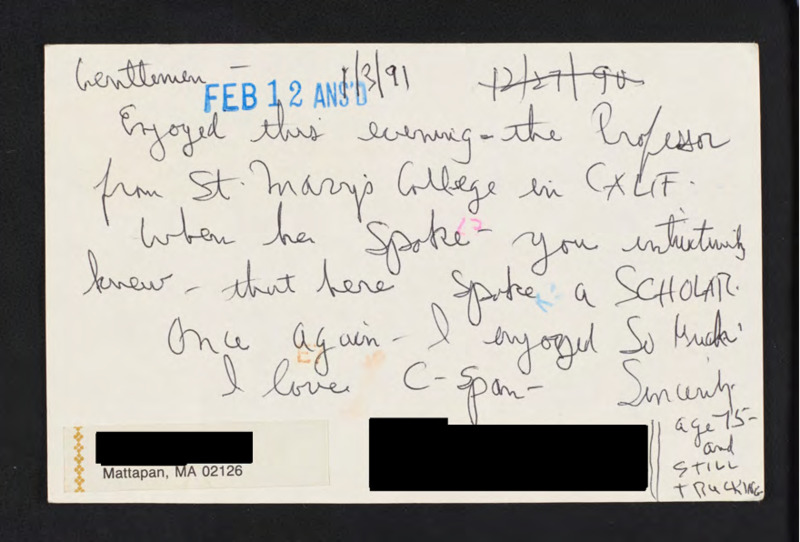 Gentlemen - 1/3/91 12/27/90
FEB 12 ANS'D
Enjoyed this evening - the Professor
from St. Mary's College in CALIF.
When he spoke - you intuitively
knew - that here spoke a SCHOLAR.
Once again - I enjoyed So Much!
I love C-Span - Sincerely
age 75 -
and
STILL
TRUCKING
Mattapan, MA 02126